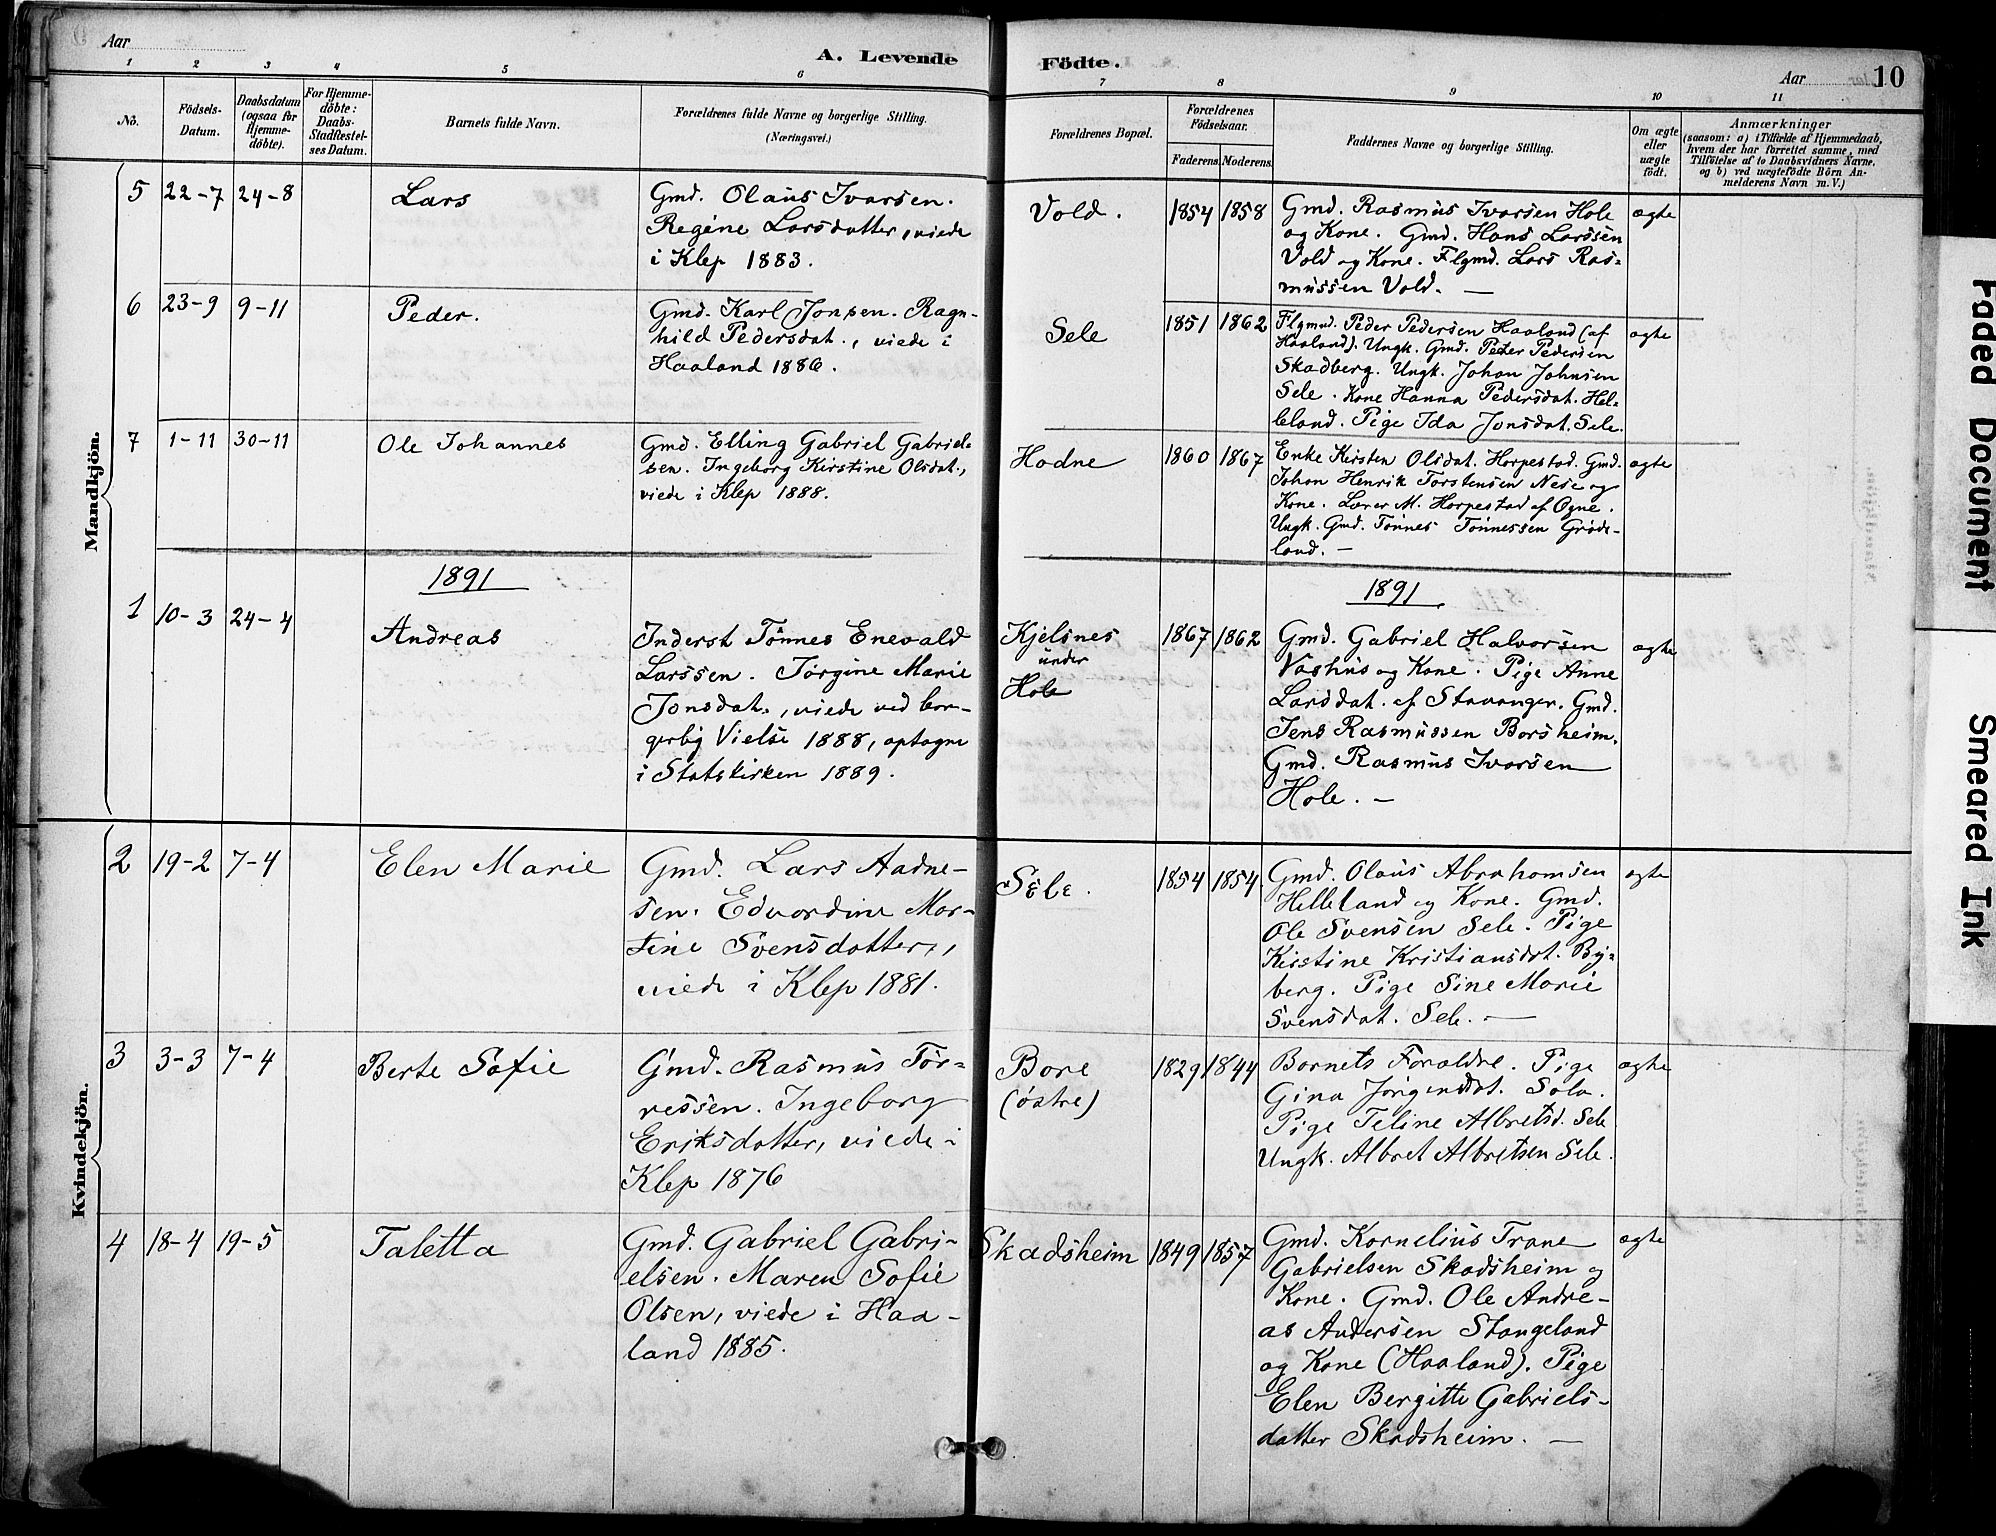 Aar
A. Levende
Födte.
Aar
10
1
2
3
4
5
6
7
8
9
10
11
No.
Födsels-
Datum.
Daabsdatum
(ogsaa for
Hjemme-
döbte).
For Hjemme-
döbte:
Daabs-
Stadfæstel-
ses Datum.
Barnets fulde Navn.
Forældrenes fulde Navne og borgerlige Stilling.
(Næringsvei.)
Forældrenes Bopæl.
Forældrenes
Födselsaar.
Faderens.
Moderens.
Faddernes Navne og borgerlige Stilling.
Om ægte
eller
uægte
födt.
Anmærkninger
(saasom: a) i Tilfælde af Hjemmedaab,
hvem der har forrettet samme, med
Tilföielse af to Daabsvidners Navne.
og b) ved uægtefödte Börn An-
melderens Navn m. V.)
Mandkjön.
5
22-7
24-8
Lars
Gmd. Olaus Ivarsen.
Regine Larsdatter, viede
i Klep 1883.
Vold.
1854
1858
Gmd. Rasmus Ivarsen Hole
og Kone. Gmd. Hans Larssen
Vold og Kone. Flgmd. Lars Ras-
mussen Vold. —
ægte
6
23-9
9-11
Peder.
Gmd. Karl Jonsen. Ragn-
hild Pedersdat., viede i
Haaland 1886.
Sele
1851
1862
Flgmd. Peder Pedersen Haaland (af
Haaland). Ungk. Gmd. Peder Pedersen
Skadberg. Ungk. Johan Johnsen
Sele. Kone Hanna Pedersdat. Hel-
leland. Pige Ida Jonsdat. Sele.
ægte
7
1-11
30-11
Ole Johannes
Gmd. Elling Gabriel Gabriel-
sen. Ingeborg Kirstine Olsdat.,
viede i Klep 1888.
Hodne
1860
1867
Enke Kirsten Olsdat. Horpestad. Gmd.
Johan Henrik Torstensen Nese og
Kone. Lærer M. Horpestad af Ogne.
Ungk. Gmd. Tönnes Tönnessen Gröde-
land. —
ægte
1891
1891
1
10-3
24-4
Andreas
Inderst Tönnes Enevald
Larssen. Torgine Marie
Jonsdat., viede ved bor-
gerlig Vielse 1888, optagne
i Statskirken 1889.
Kjelsnes
under
Hole
1867
1862
Gmd. Gabriel Halvorsen
Vashus og Kone. Pige Anne
Larsdat. af Stavanger. Gmd.
Jens Rasmussen Borsheim.
Gmd. Rasmus Ivarsen
Hole. —
ægte
Kvindekjön.
2
19-2
7-4
Elen Marie
Gmd. Lars Aadne-
sen. Edvardine Mar-
tine Svensdatter,
viede i Klep 1881.
Sele.
1854
1854
Gmd. Olaus Abrahamsen
Helleland og Kone. Gmd.
Ole Svensen Sele. Pige
Kirstine Kristiansdat. By-
berg. Pige Sine Marie
Svensdat. Sele. —
ægte
3
3-3
7-4
Berte Sofie
Gmd. Rasmus Tor-
ressen. Ingeborg
Eriksdatter, viede i
Klep 1876
Bore
(østre)
1829
1844
Barnets Forældre. Pige
Gina Jörgensdat. Sola.
Pige Teline Albretsd. Sele
Ungk. Albret Albretsen Sele.
ægte
4
18-4
19-5
Taletta
Gmd. Gabriel Gabri-
elsen. Maren Sofie
Olsen, viede i Haa-
land 1885.
Skadsheim
1849
1857
Gmd. Kornelius Trane
Gabrielsen Skadsheim og
Kone. Gmd. Ole Andre-
as Andersen Stangeland
og Kone (Haaland). Pige
Elen Bergitte Gabriels-
datter Skadsheim. —
ægte
Faded Document
Smeared Ink